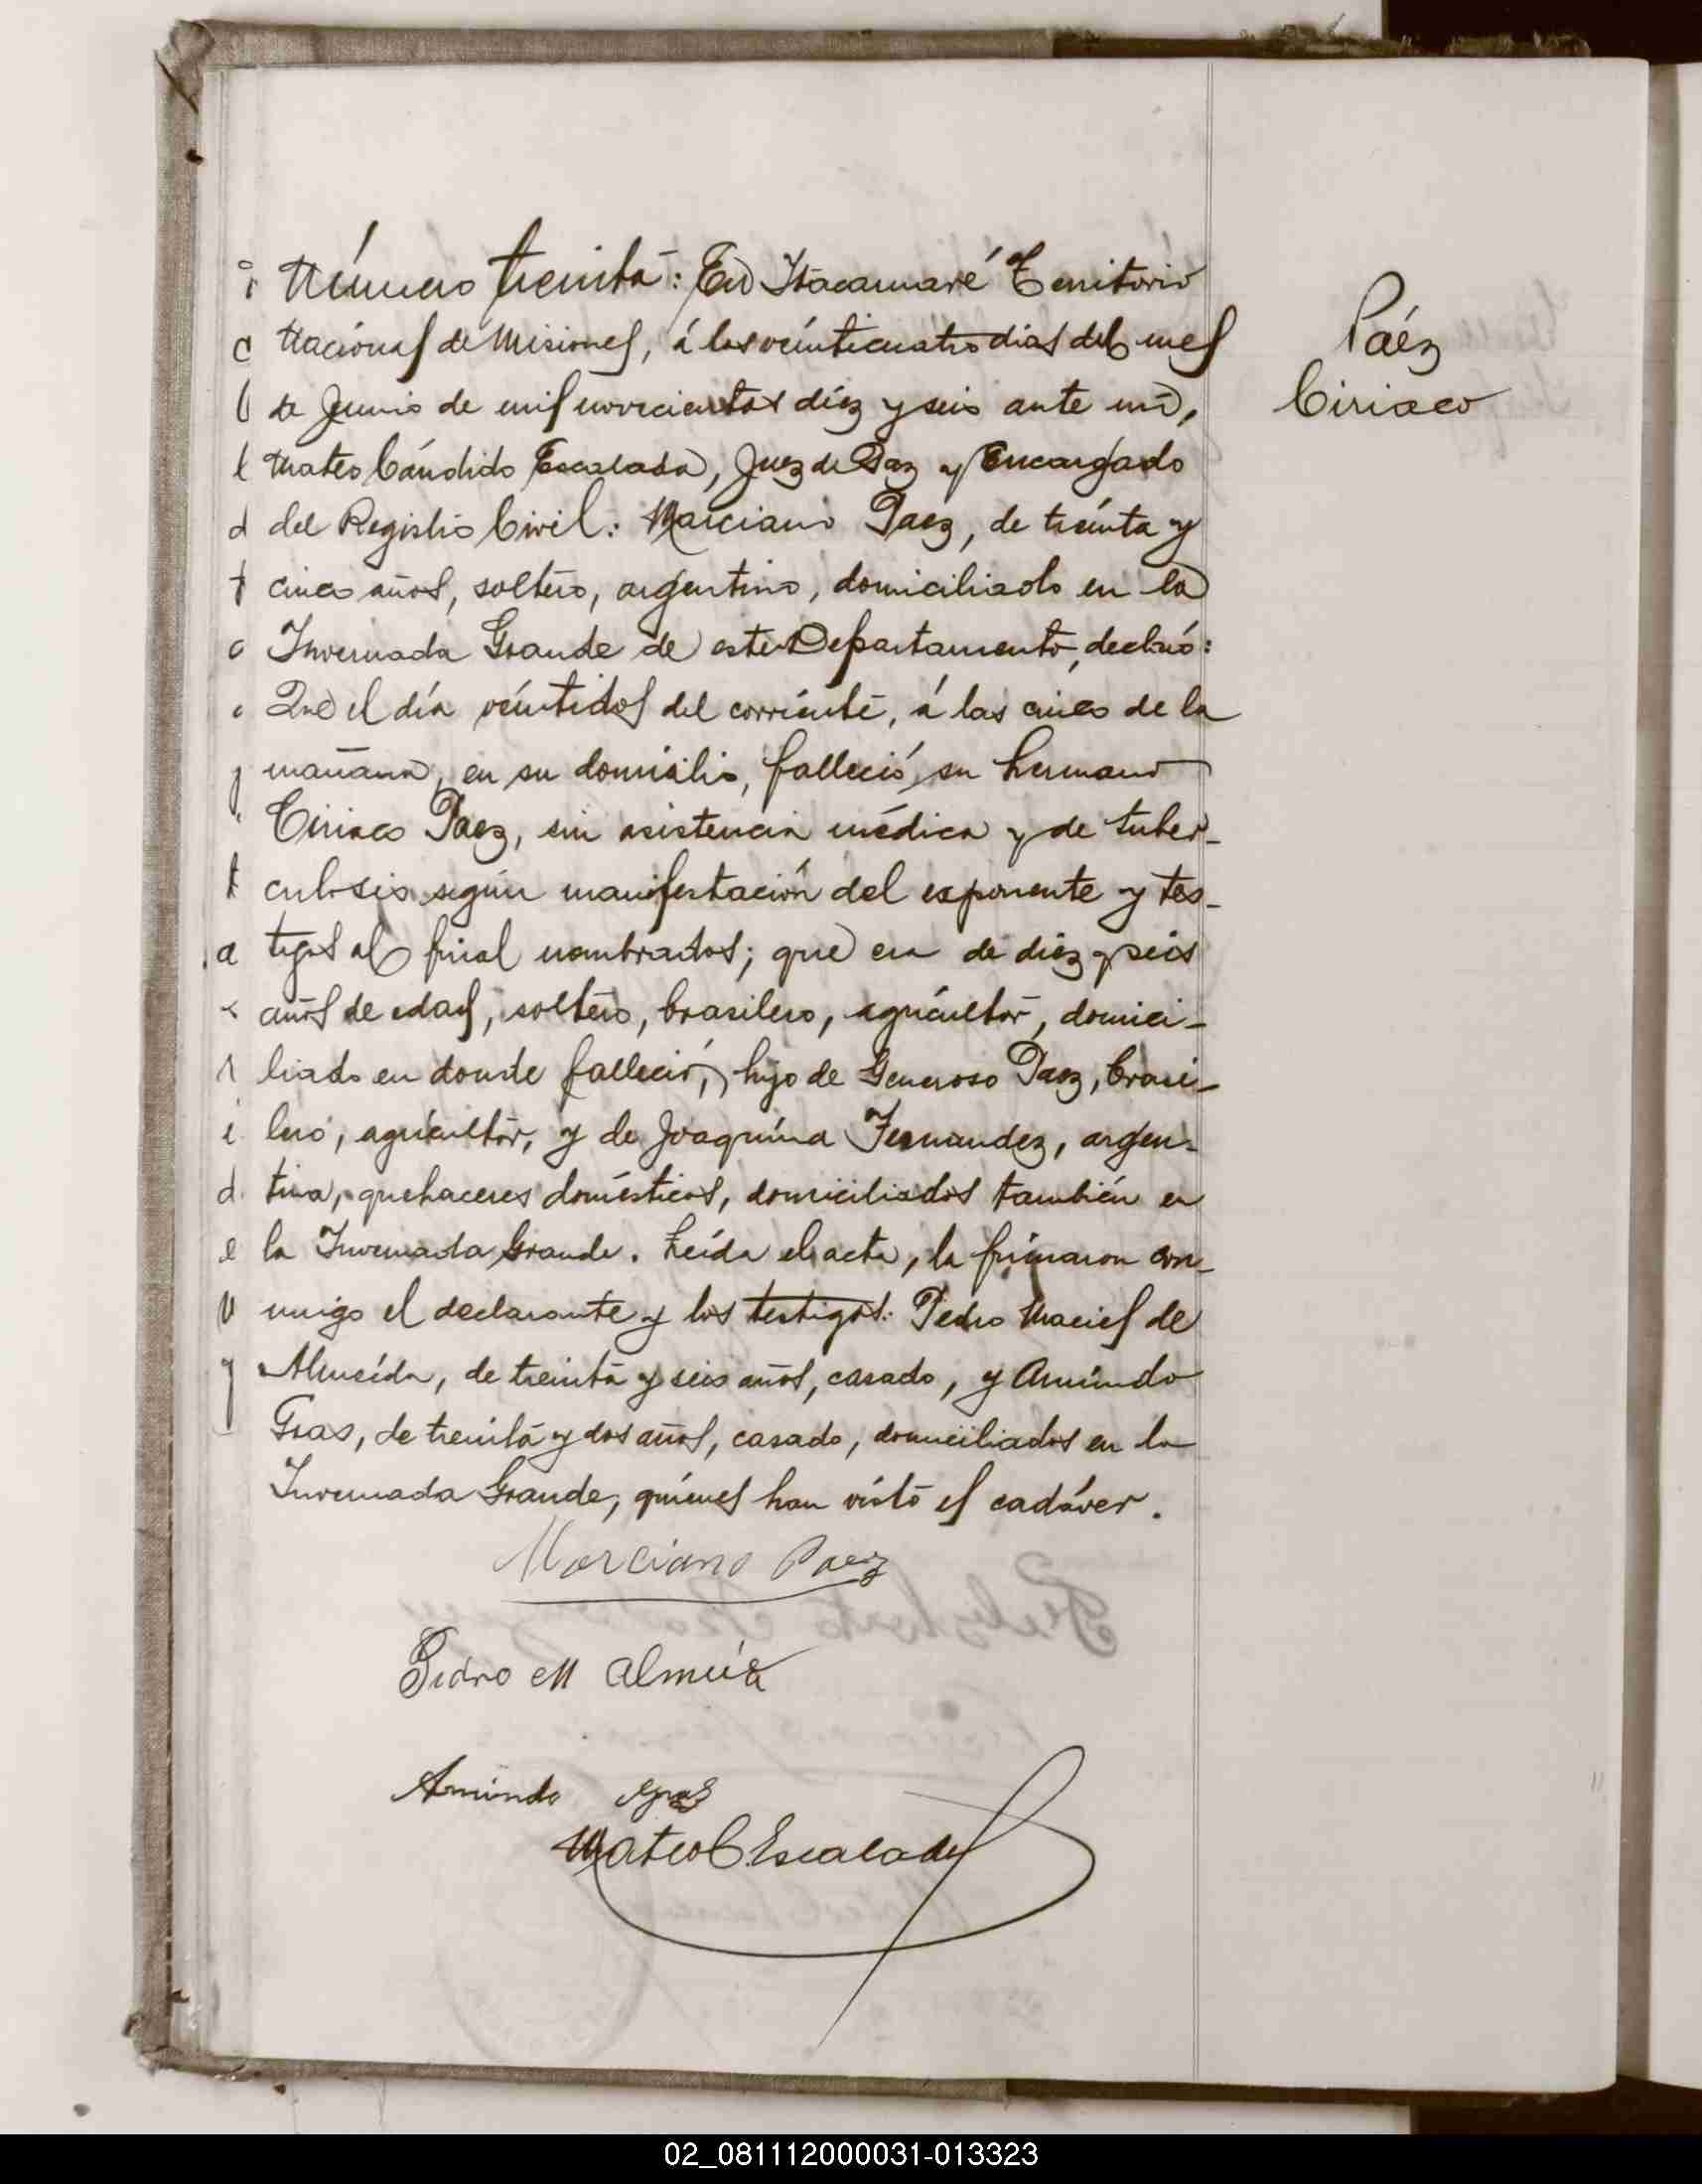 Número treinta: En Itacaruaré Territorio
Nacional de Misiones, á los veinticuatro dias del mes
de Junio de mil novecientos diez y seis ante mi,
Mateo Cándido Escalada, Juez de Paz y Encargado
del Registro Civil: Marciano Paez, de treinta y
cinco años, soltero, argentino, domiciliado en la
Invernada Grande de este Departamento, declaró:
Que el día veintidos del corriente, á las cinco de la
mañana, en su domicilio, falleció su hermano
Ciriaco Paez, sin asistencia médica y de tuber-
culosis según manifestación del exponente y tes-
tigos al final nombrados; que era de diez y seis
años de edad, soltero, brasilero, agricultor, domici-
liado en donde falleció, hijo de Generoso Paez, brasi-
lero, agricultor, y de Joaquina Fernandez, argen-
tina, quehaceres domésticos, domiciliados también en
la Invernada Grande. Leída el acta, la firmaron con-
migo el declarante y los testigos: Pedro Maciel de
Almeida, de treinta y seis años, casado, y Amindo
Gras, de treinta y dos años, casado, domiciliados en la
Invernada Grande, quienes han visto el cadáver.
Marciano Paez
Pedro M Almeida
Amindo Gras
Mateo C. Escalada
Páez
Ciriaco
02_081112000031-013323